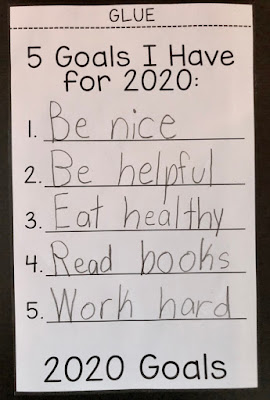 GLUE
5 Goals I Have
for 2020:
1. Be nice
2. Be helpful
3. Eat healthy
4. Read books
5. Work hard
2020 Goals